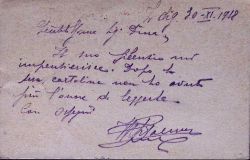 30-XI. 1918
Il suo silenzio mi
impensierisce. Dopo la
sua cartolina non ho avuto
più l'onore di leggerla
Con ossequi